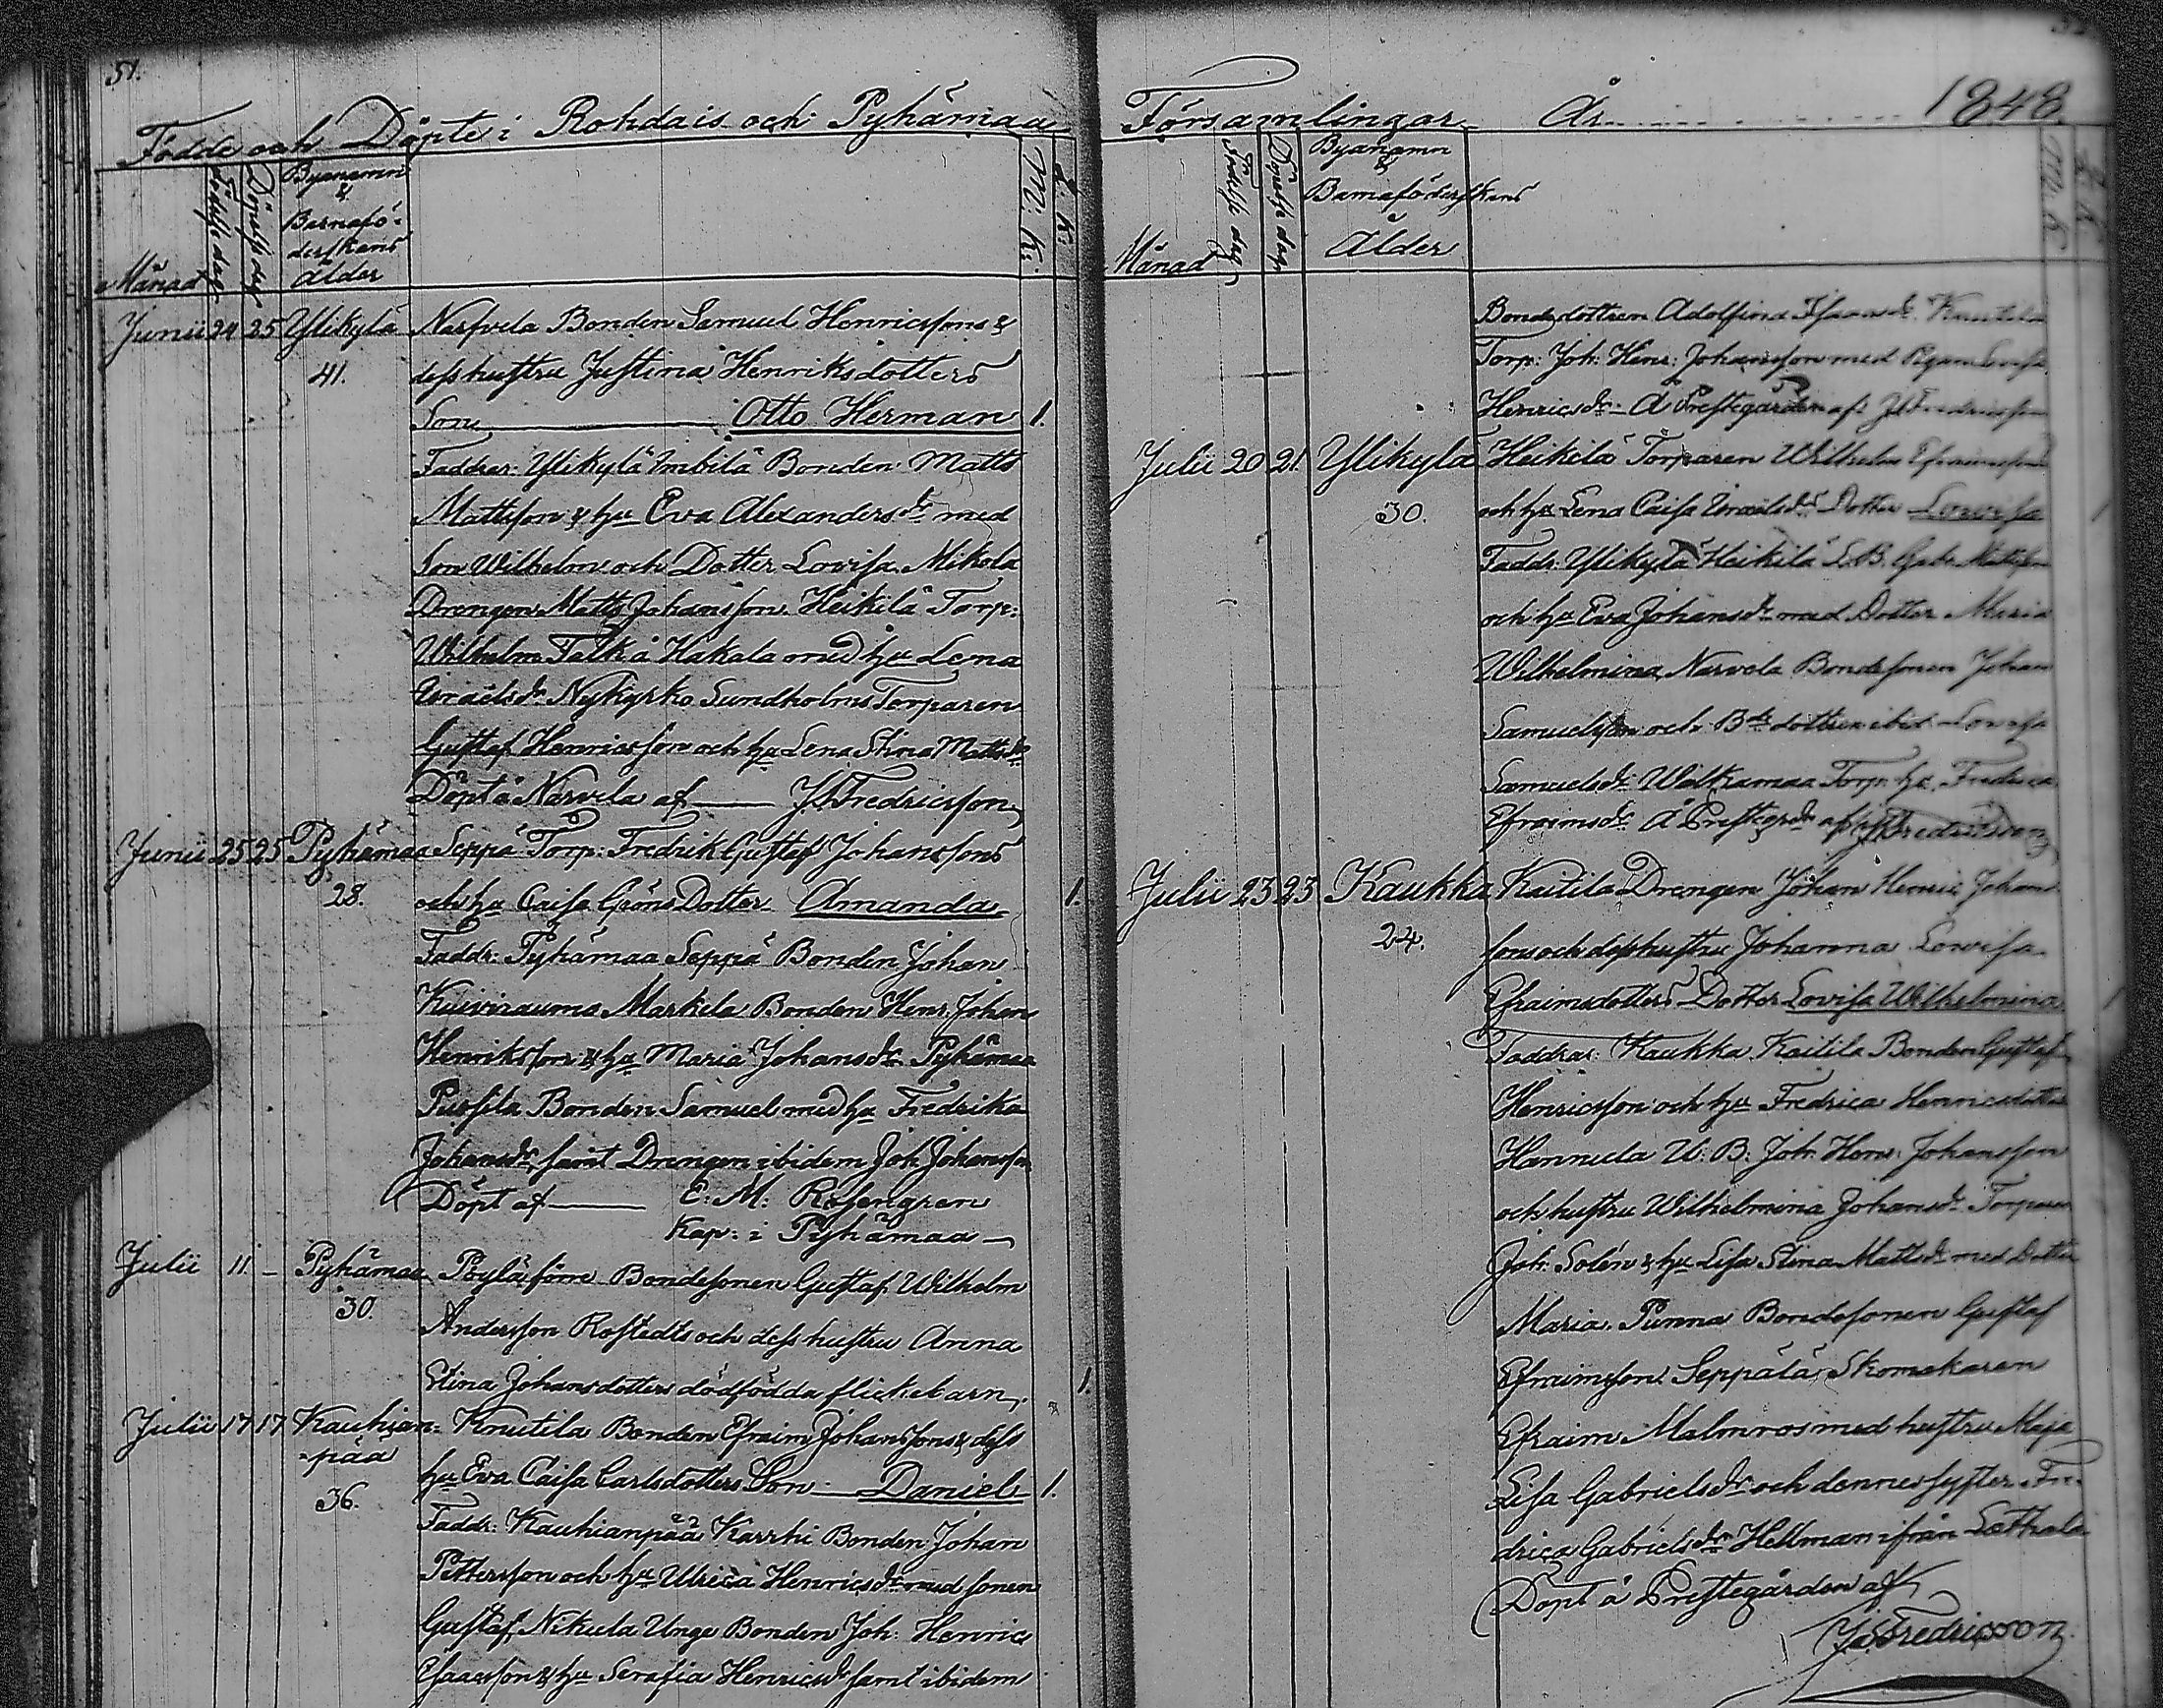 51.
Födde och Döpte i Rohdais och Pyhämaa
Månad
Födelse dag
Döpelse dag
Byanamn
&
Barnafö-
derskans
ålder
M. K.
Q. K.
Junii 24 25 Ylikylä Narfvela Bonden Samuel Henricssons &
41. dess hustru Justina Henriksdotters
Son Otto Herman 1.
Faddrar: Ylikylä Imbilä Bonden Matts
Mattsson & hu Eva Alexandersdr med
Son Wilhelm och Dotter Lovisa. Mikola
Drengen Matts Johansson. Heikilä Torp:
Wilhelm Falk å Hakala med hu Lena
Israelsdr Nykyrko Sundholms Torparen
Gustaf Henricsson och hu Lena Stina Mattsdr
Döpt å Narvela af J. Fredricsson
Junii 25 25 Pyhämaa Seppä Torp: Fredrik Gustaf Johanssons
28. och hu Caisa Gröns Dotter Amanda 1.
Faddr: Pyhämaa Seppä Bonden Johan
Kuivirauma Markela Bonden Henr. Johan
Henriksson & hu Maria Johansdr Pyhämaa
Pursila Bonden Samuel med hu Fredrika
Johansdr samt Drengen ibidem Joh. Johansson
Döpt af E: M: Rosengren
Kap: i Pyhämaa
Julii 11. – Pyhämaa Pöylä förre Bondesonen Gustaf Wilhelm
30. Andersson Rostedts och dess hustru Anna
Stina Johansdotters dödfödda flickebarn. 1.
Julii 17 17 Kauhian- Knutila Bonden Efraim Johanssons & dess
-pää hu Eva Caisa Carlsdotters Son Daniel 1.
36.
Faddr: Kauhianpää Karrhi Bonden Johan
Pettersson och hu Ulrica Henricsdr med sonen
Gustaf. Nikula Unge Bonden Joh. Henric
Isaacsson & hu Serafia Henricsdr samt ibidem
Församlingar År 1848.
Månad
Födelse dag
Döpelse dag
Byanamn
&
Barnaföderskans
Ålder
M. K.
Q. K.
Bondedottren Adolfina Isaacsdr. Knutila
Torp: Joh: Henr: Johansson med Pigan Lovisa
Henricsdr. Å Prestegården af: J. Fredricsson
Julii 20 21 Ylikylä Heikilä Torparen Wilhelm Efraimssons
30. och hu Lena Caisa Israelsdrs Dotter Lovisa
Faddr: Ylikylä Heikilä S. B. Gabr. Mattsson
och hu Eva Johansdr med Dotter Maria
Wilhelmina, Narvela Bondesonen Johan
Samuelsson och Bdedottren ibid. Lovisa
Samuelsdr Walkamaa Torp. hu Fredrica
Efraimsdr. Å Prestegdn af J. Fredricsson
Julii 23 23 Kaukka Kaitila Drengen Johan Henric Johans-
24. sons och dess hustru Johanna Lovisa
Efraimsdotters Dotter Lovisa Wilhelmina 1
Faddrar: Kaukka Kaitila Bonden Gustaf
Henricsson och hu Fredrica Henricsdotter
Hannula U: B: Joh. Henr: Johansson
och hustru Wilhelmina Johansdr Torparen
Joh. Solén & hu Lisa Stina Mattsdr med Dotter
Maria. Punna Bondesonen Gustaf
Efraimsson. Seppälä Skomakaren
Efraim Malmros med hustru Maja
Lisa Gabrielsdr och dennes syster Fre-
drica Gabrielsdr Hellman ifrån Letthala
Döpt å Prestegården af
J. Fredricsson